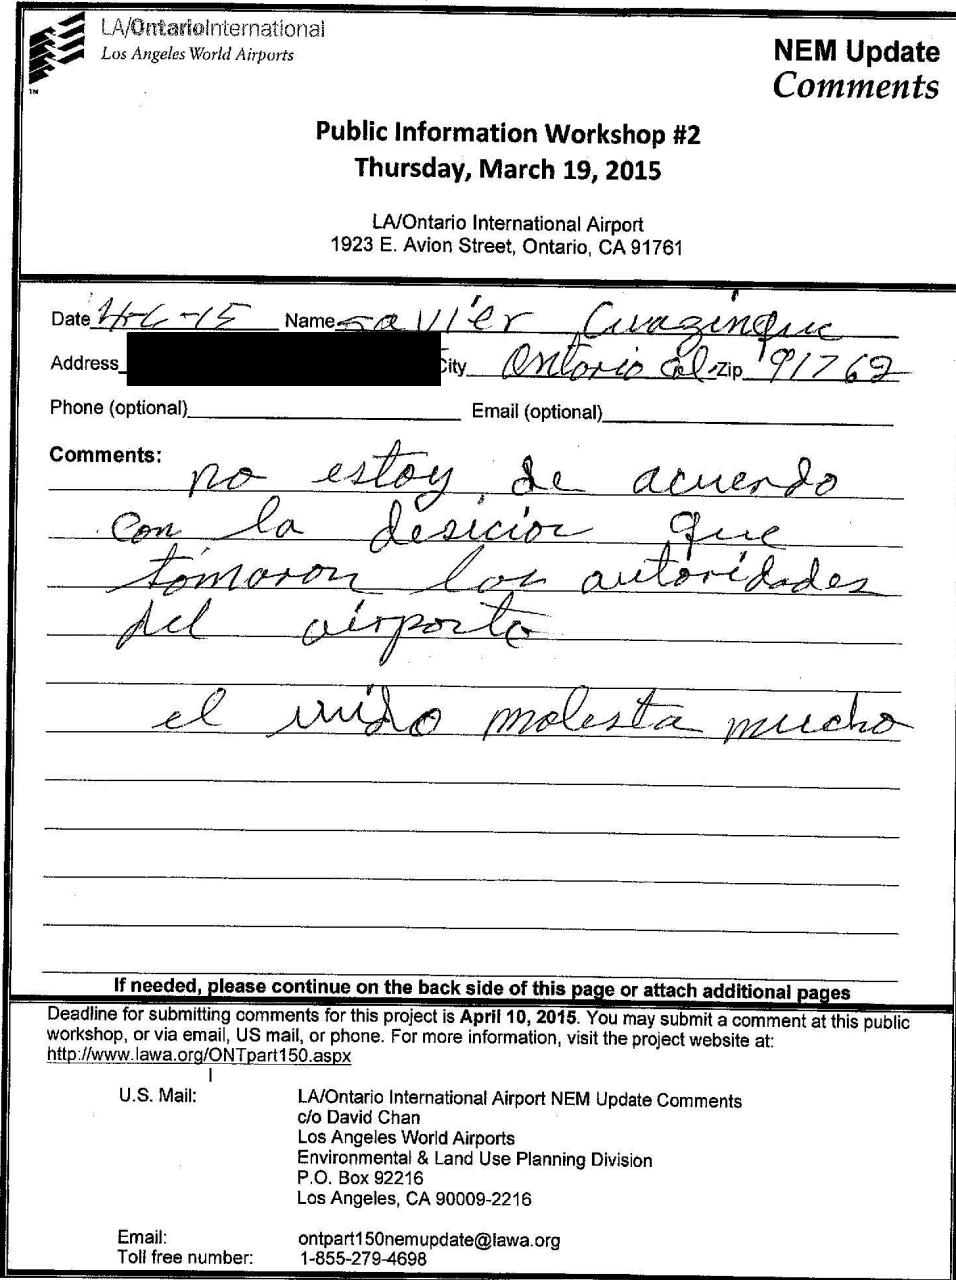 LA/OntarioInternational
Los Angeles World Airports
TM
NEM Update
Comments
Public Information Workshop #2
Thursday, March 19, 2015
LA/Ontario International Airport
1923 E. Avion Street, Ontario, CA 91761
Date 4-6-15 Name Javier
Address City Ontario Cal. Zip 91762
Phone (optional) Email (optional)
Comments:
no estoy de acuerdo
con la desicion que
tomaron las autoridades
del airporto
el ruido molesta mucho
If needed, please continue on the back side of this page or attach additional pages
Deadline for submitting comments for this project is April 10, 2015. You may submit a comment at this public
workshop, or via email, US mail, or phone. For more information, visit the project website at:
http://www.lawa.org/ONTpart150.aspx
U.S. Mail: LA/Ontario International Airport NEM Update Comments
c/o David Chan
Los Angeles World Airports
Environmental & Land Use Planning Division
P.O. Box 92216
Los Angeles, CA 90009-2216
Email: ontpart150nemupdate@lawa.org
Toll free number: 1-855-279-4698